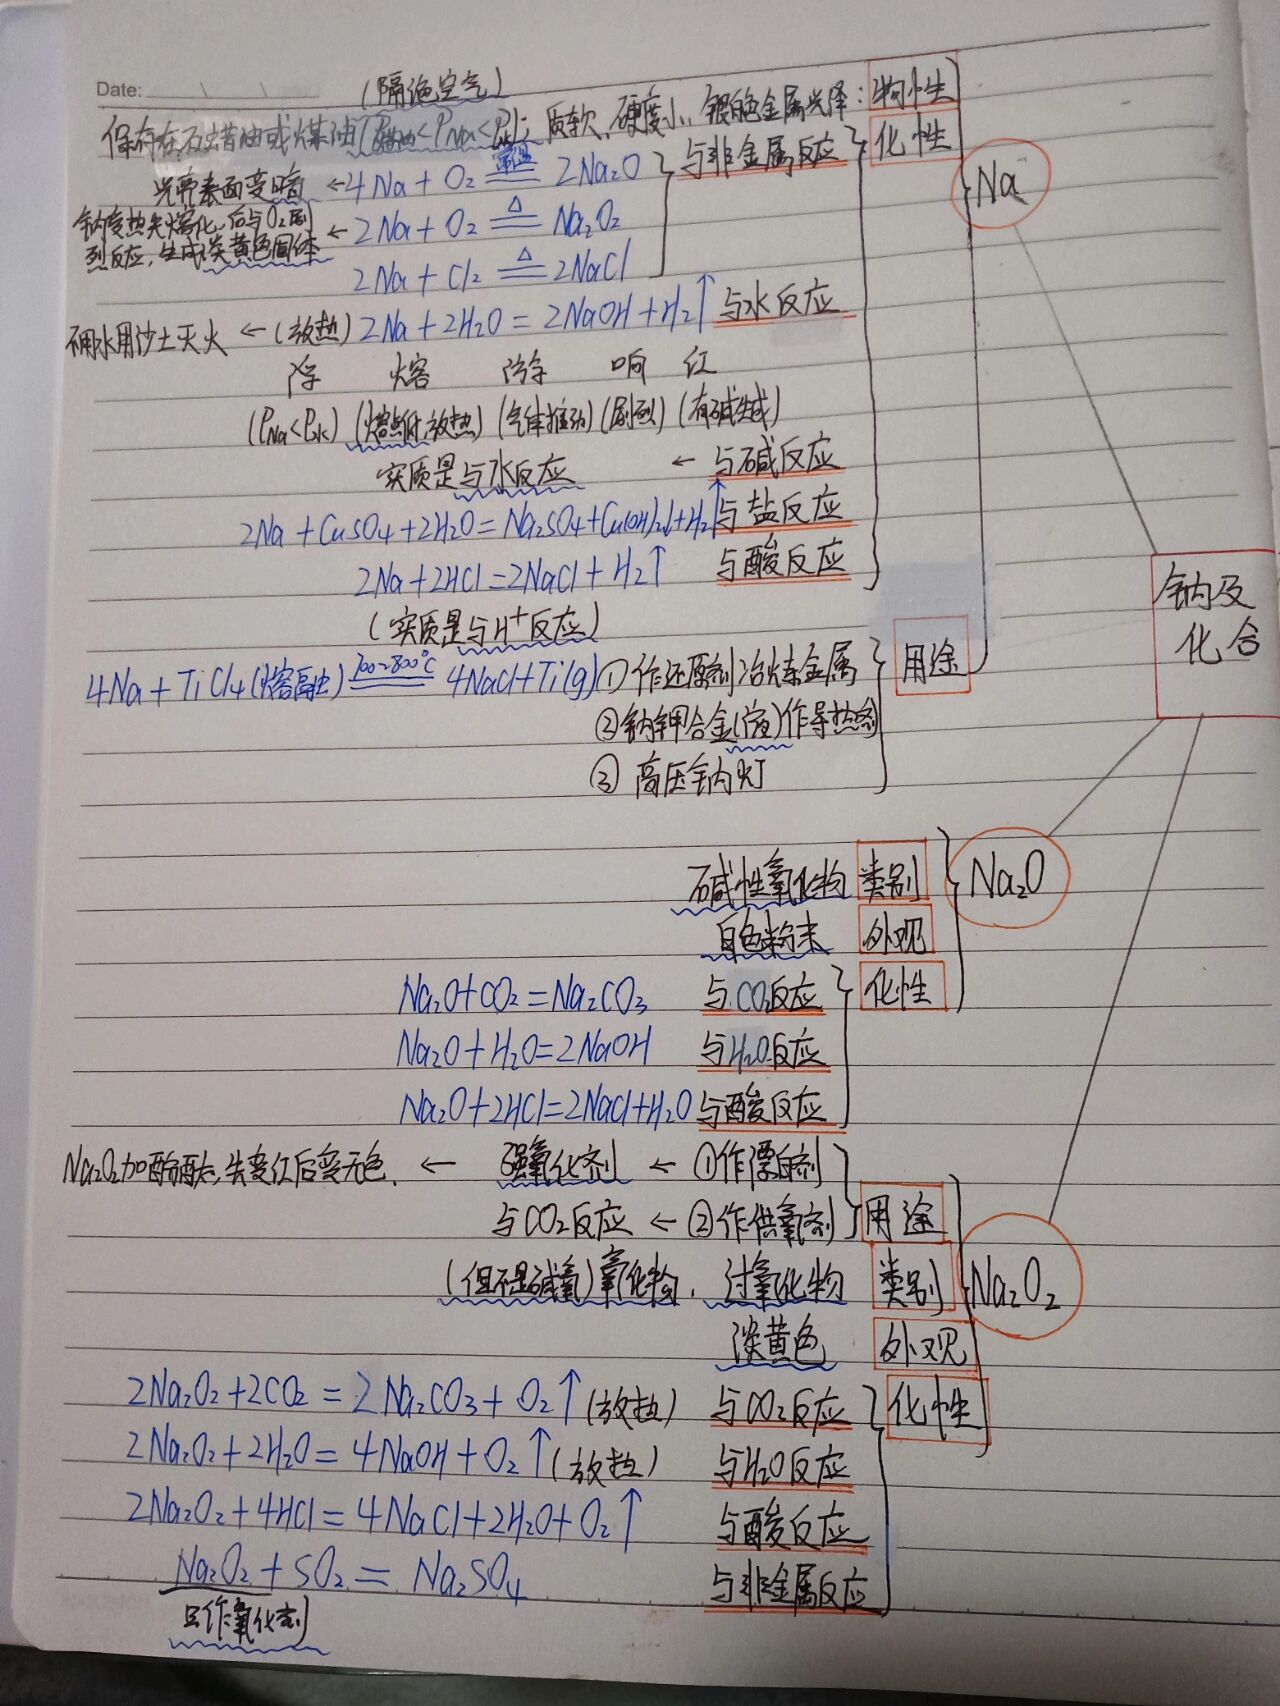 Date:
(隔绝空气)
保存在石蜡油或煤油(ρ煤油<ρNa<ρ水); 质软、硬度小、银白色金属光泽: 物性
光亮表面变暗 ← 4Na + O₂ =常温= 2Na₂O 与非金属反应 化性 Na
钠受热先熔化,后与O₂剧烈反应,生成淡黄色固体 ← 2Na + O₂ =△= Na₂O₂
2Na + Cl₂ =△= 2NaCl
不用水用沙土灭火 ← (放热) 2Na + 2H₂O = 2NaOH + H₂↑ 与水反应
浮 熔 游 响 红
(ρNa<ρ水) (熔点低,放热) (气体推动) (剧烈) (有碱生成)
实质是与水反应 ← 与碱反应
2Na + CuSO₄ + 2H₂O = Na₂SO₄ + Cu(OH)₂↓ + H₂↑ 与盐反应
2Na + 2HCl = 2NaCl + H₂↑ 与酸反应
(实质是与H⁺反应)
钠及
化合
4Na + TiCl₄(熔融) =700~800℃= 4NaCl + Ti(g) ①作还原剂冶炼金属 用途
②钠钾合金(液)作导热剂
③高压钠灯
碱性氧化物 类别 Na₂O
白色粉末 外观
Na₂O + CO₂ = Na₂CO₃ 与CO₂反应 化性
Na₂O + H₂O = 2NaOH 与H₂O反应
Na₂O + 2HCl = 2NaCl + H₂O 与酸反应
Na₂O₂加酚酞,先变红后变无色. ← 强氧化剂 ← ①作漂白剂
与CO₂反应 ← ②作供氧剂 用途
(但不是碱氧)氧化物, 过氧化物 类别 Na₂O₂
淡黄色 外观
2Na₂O₂ + 2CO₂ = 2Na₂CO₃ + O₂↑ (放热) 与CO₂反应 化性
2Na₂O₂ + 2H₂O = 4NaOH + O₂↑ (放热) 与H₂O反应
2Na₂O₂ + 4HCl = 4NaCl + 2H₂O + O₂↑ 与酸反应
Na₂O₂ + SO₂ = Na₂SO₄ 与非金属反应
只作氧化剂